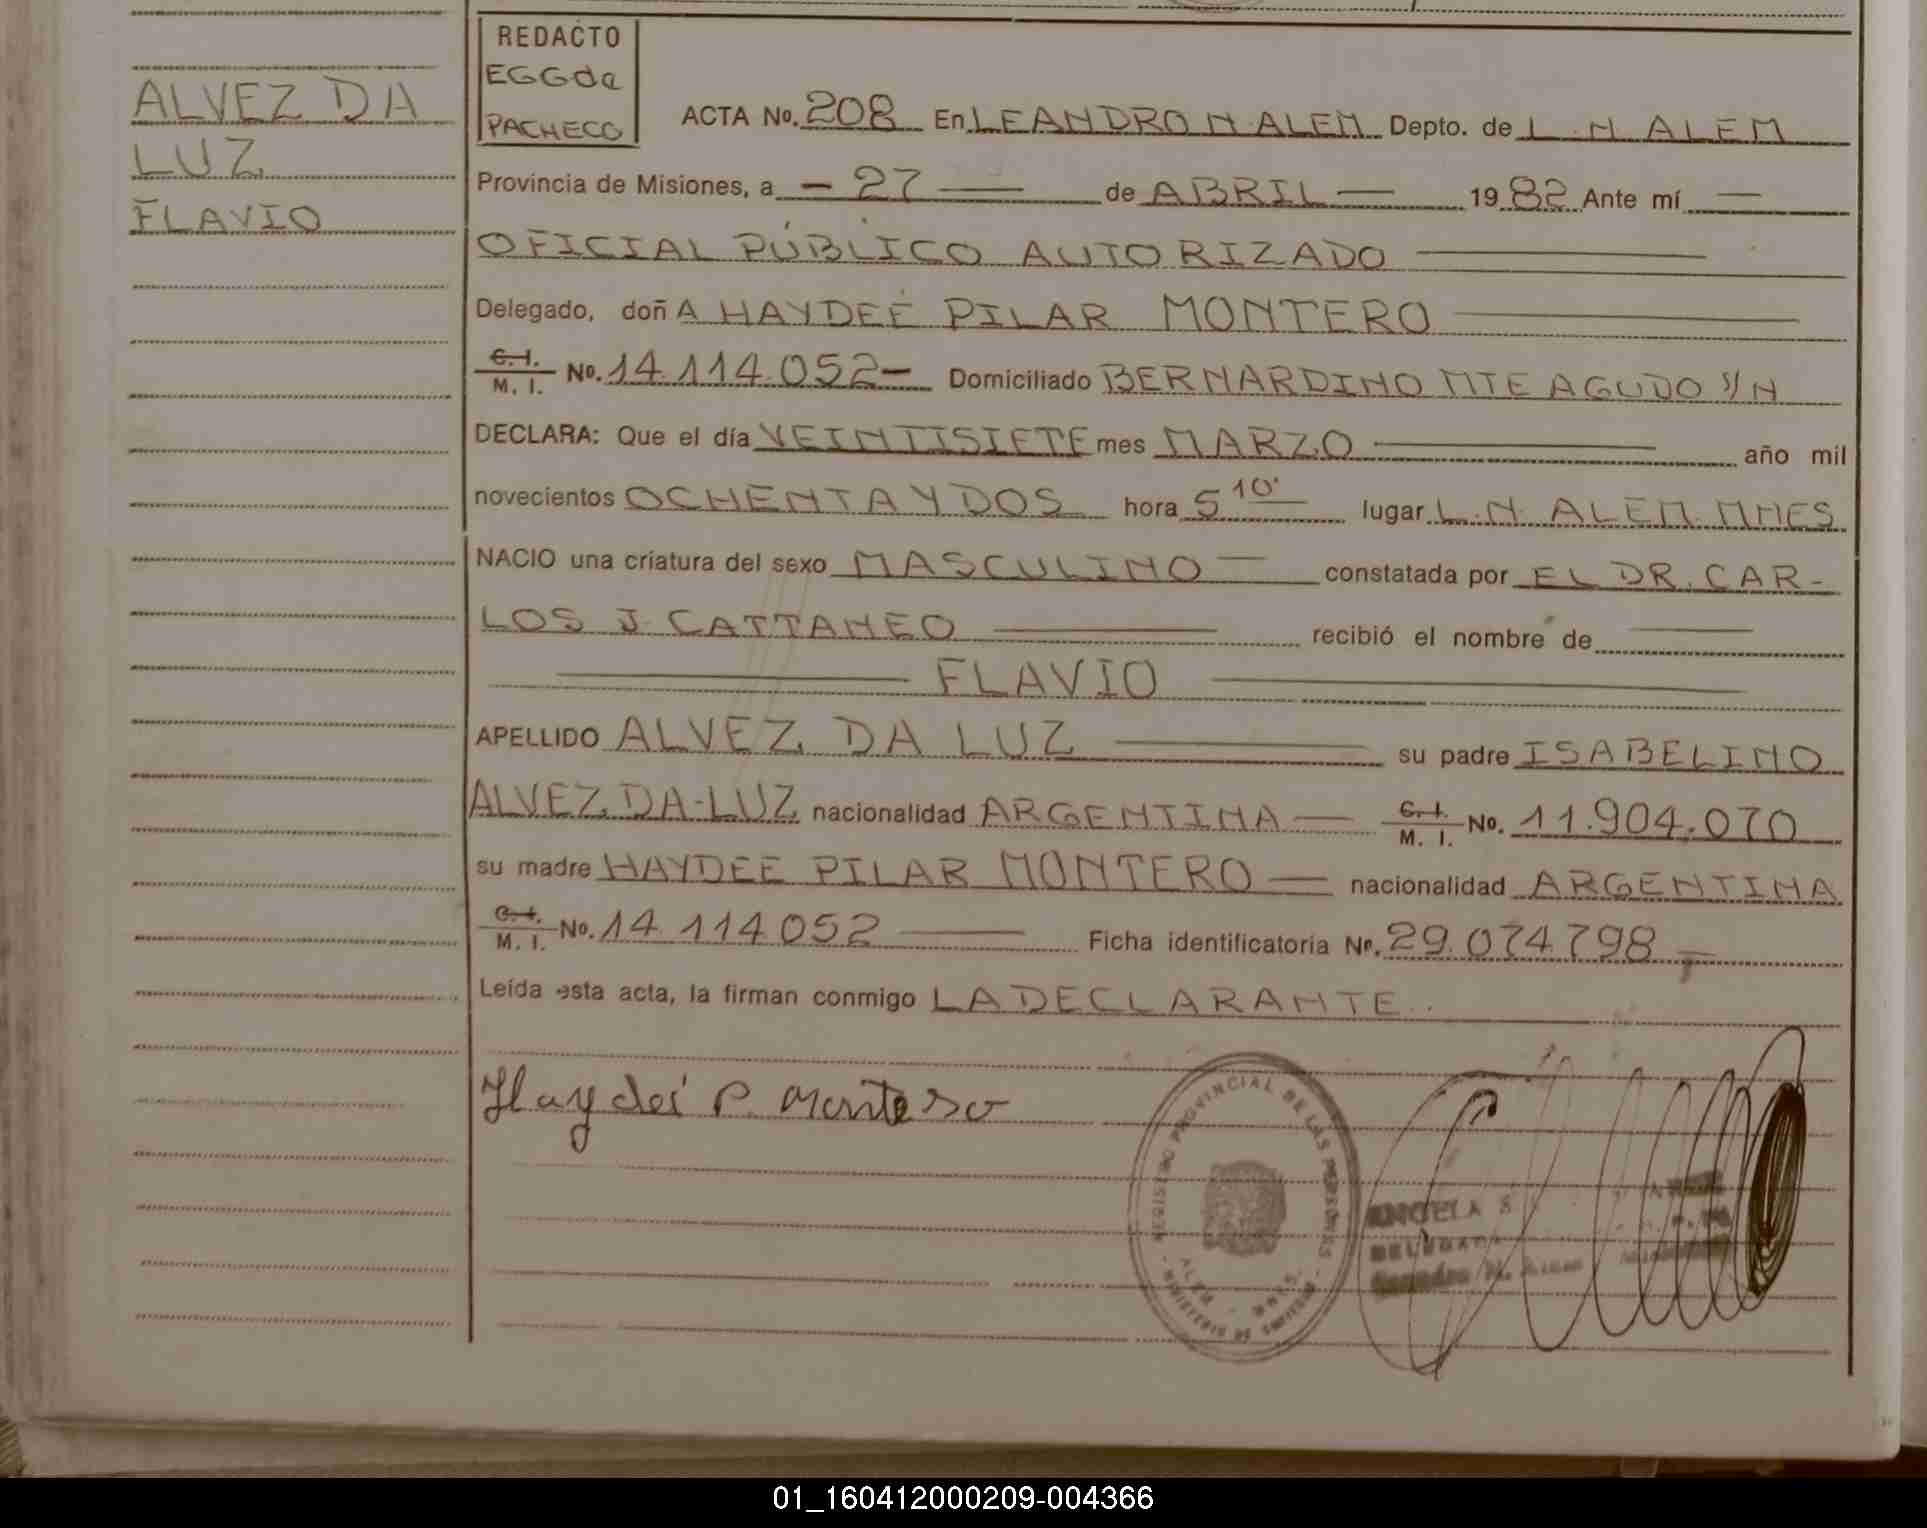 ALVEZ DA
LUZ
FLAVIO
REDACTO
EGGda
PACHECO
ACTA No. 208 En LEANDRO N. ALEM Depto. de L. N. ALEM
Provincia de Misiones, a - 27 — de ABRIL — 19 82 Ante mí —
OFICIAL PÚBLICO AUTORIZADO —
Delegado, doñA HAYDEÉ PILAR MONTERO —
C. I. / M. I. No. 14.114.052- Domiciliado BERNARDINO MTEAGUDO S/N
DECLARA: Que el día VEINTISIETE mes MARZO — año mil
novecientos OCHENTA Y DOS hora 5 10' lugar L. N. ALEM. MNES
NACIO una criatura del sexo MASCULINO — constatada por EL DR. CAR-
LOS J. CATTANEO — recibió el nombre de —
— FLAVIO —
APELLIDO ALVEZ DA LUZ — su padre ISABELINO
ALVEZ DA-LUZ nacionalidad ARGENTINA — C. I. / M. I. No. 11.904.070
su madre HAYDEE PILAR MONTERO — nacionalidad ARGENTINA
C. I. / M. I. No. 14.114.052 — Ficha identificatoria No. 29.074.798 —
Leída esta acta, la firman conmigo LA DECLARANTE..
Haydeé P. Montero
REGISTRO PROVINCIAL DE LAS PERSONAS
ALEM - MNES.
ANGELA S.
DELEGADA
Leandro N. Alem
01_160412000209-004366